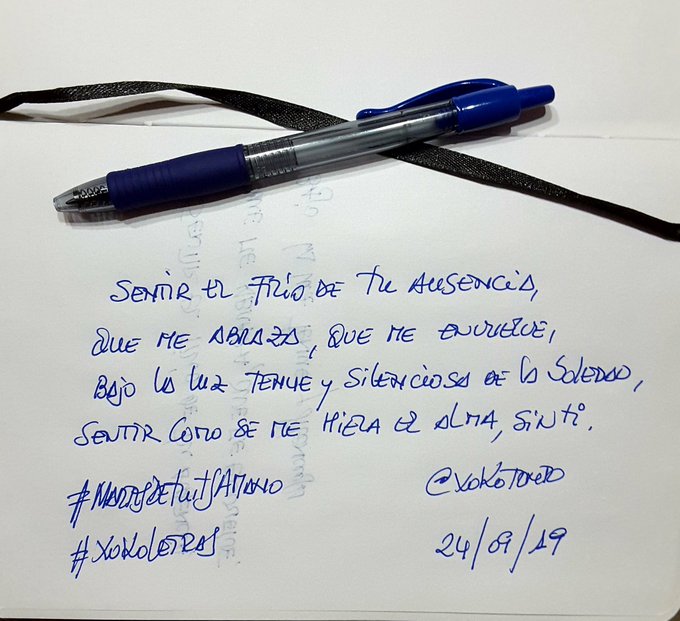 SENTIR EL FRIO DE TU AUSENCIA,
QUE ME ABRAZA, QUE ME ENVUELVE,
BAJO LA LUZ TENUE Y SILENCIOSA DE LA SOLEDAD,
SENTIR COMO SE ME HIELA EL ALMA, SIN TI.
#MARTESDETUITSAMANO
@XOKOTONTO
#XOKOLETRAS
24/09/19